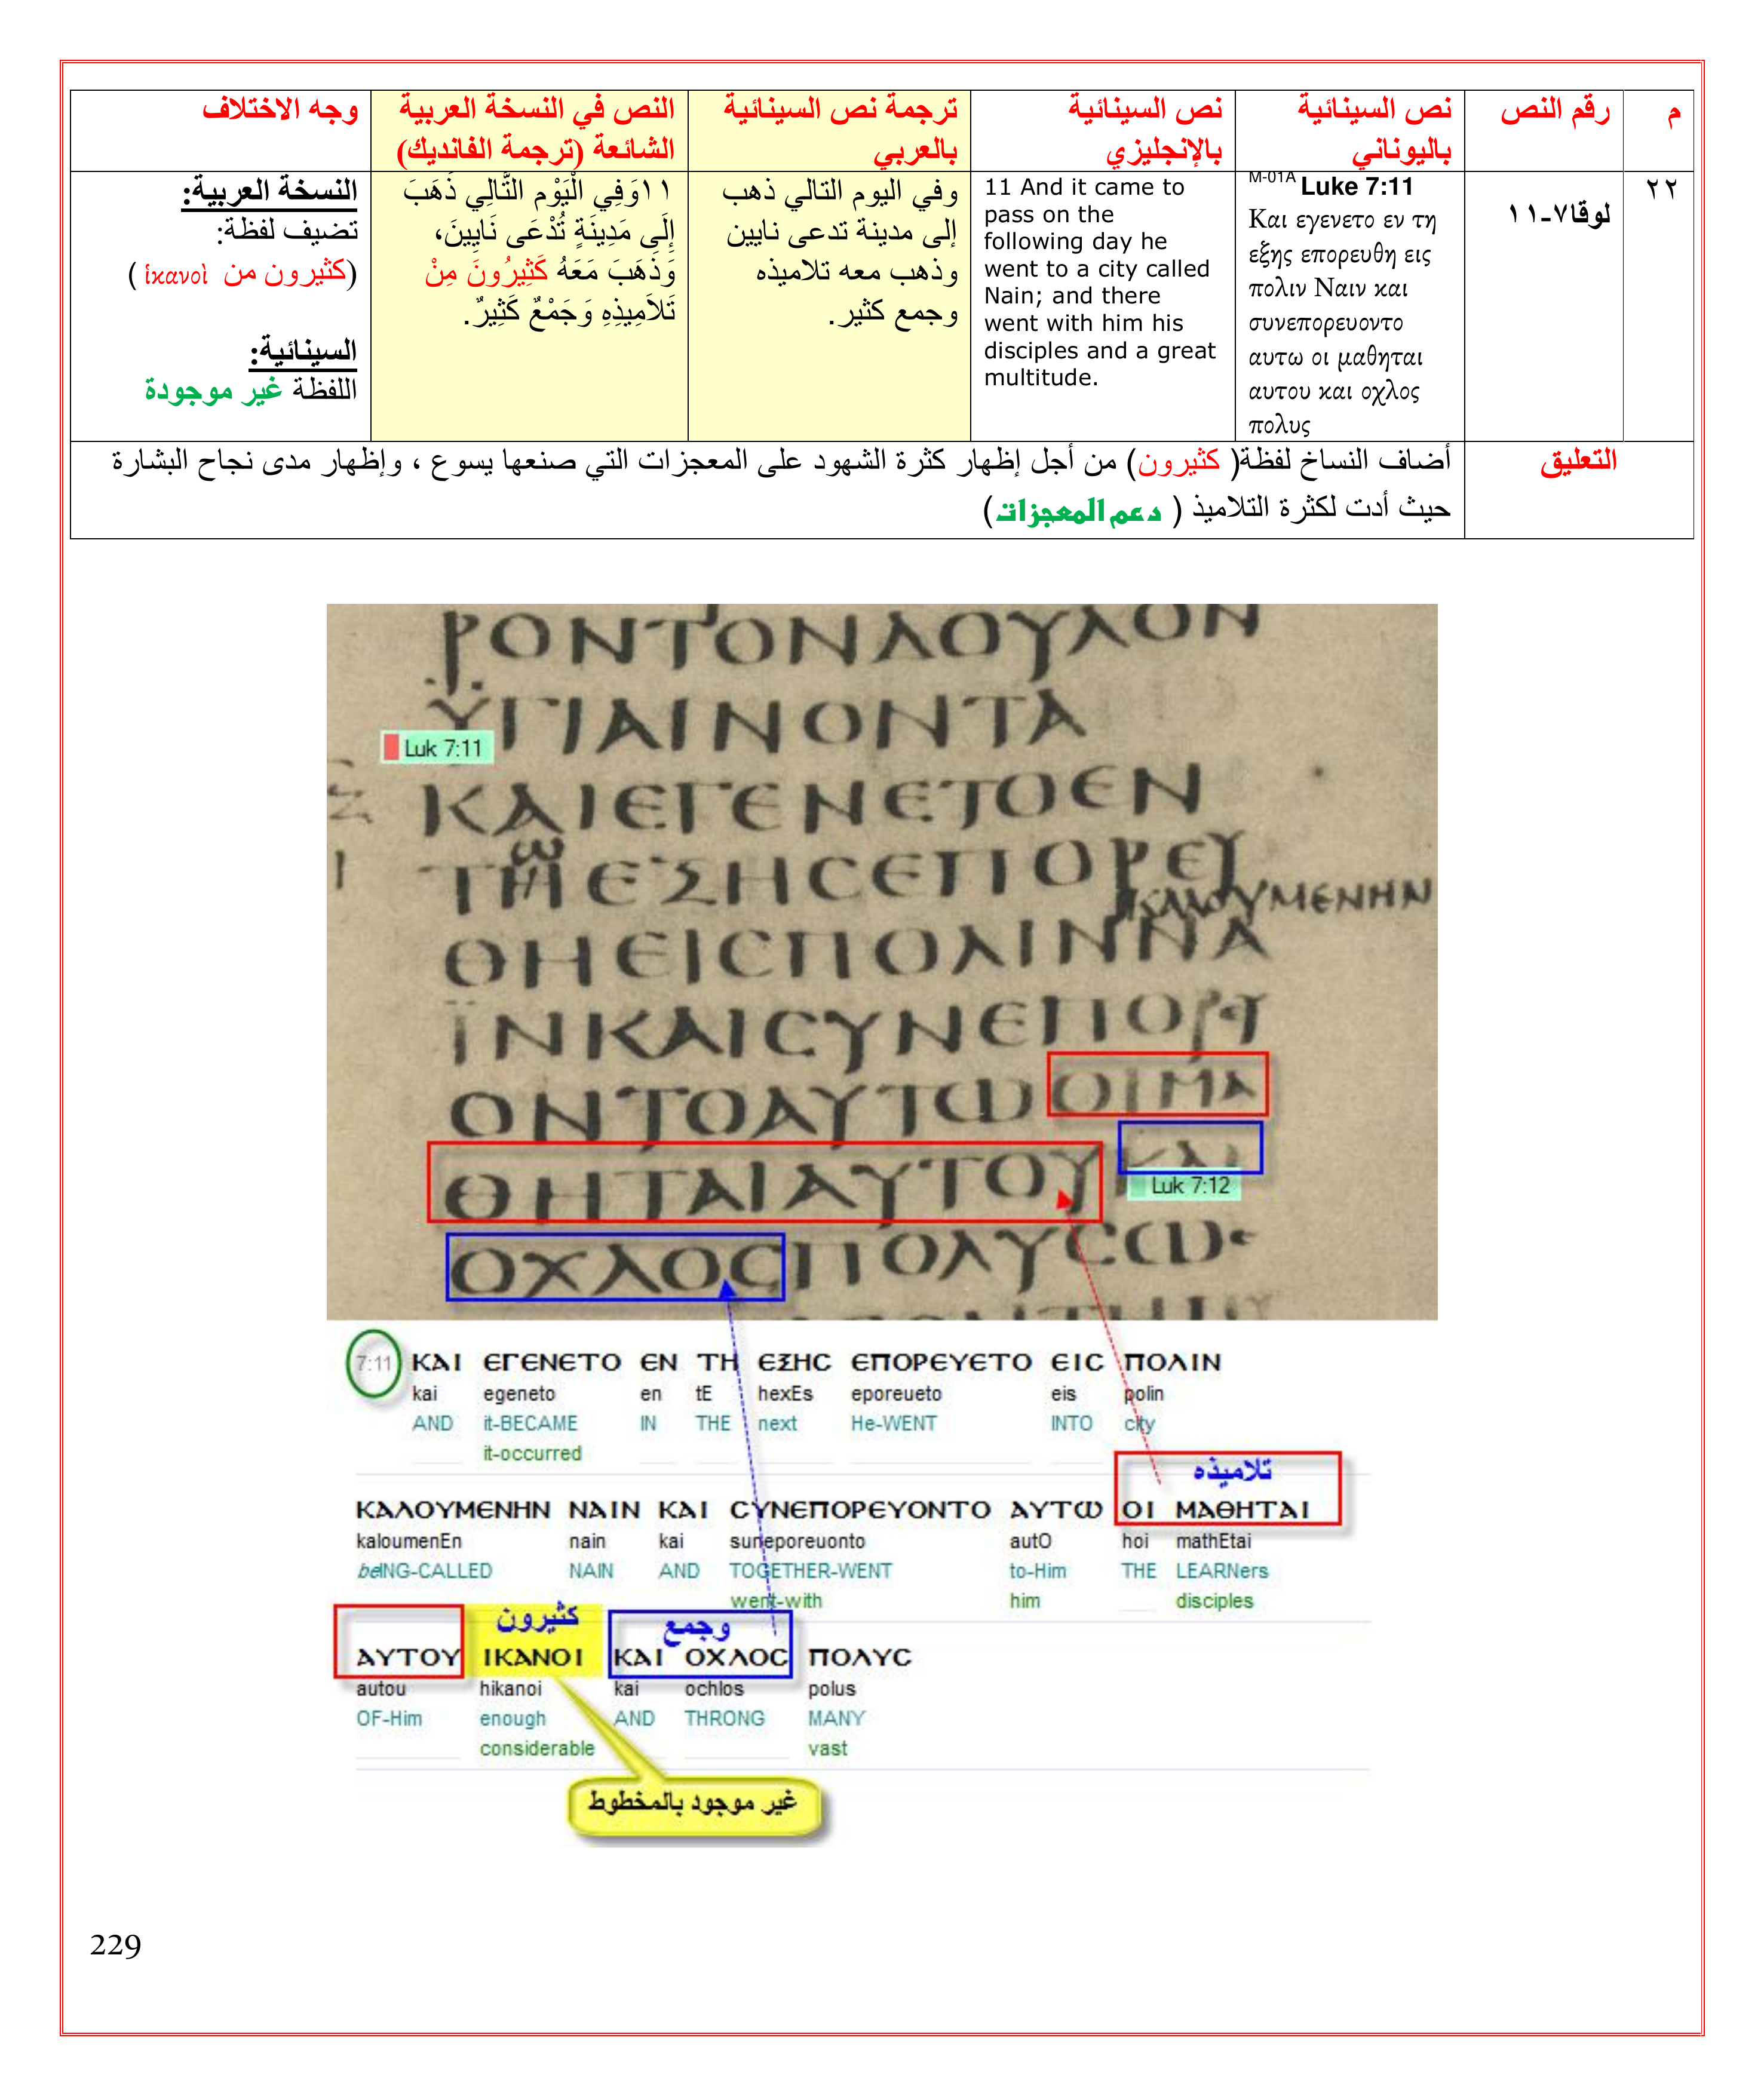 م
رقم النص
نص السينائية
باليوناني
نص السينائية
بالإنجليزي
ترجمة نص السينائية
بالعربي
النص في النسخة العربية
الشائعة (ترجمة الفانديك)
وجه الاختلاف
٢٢
لوقا٧-١١
M-01A Luke 7:11
Και εγενετο εν τη
εξης επορευθη εις
πολιν Ναιν και
συνεπορευοντο
αυτω οι μαθηται
αυτου και οχλος
πολυς
11 And it came to
pass on the
following day he
went to a city called
Nain; and there
went with him his
disciples and a great
multitude.
وفي اليوم التالي ذهب
إلى مدينة تدعى نايين
وذهب معه تلاميذه
وجمع كثير.
١١وَفِي الْيَوْمِ التَّالِي ذَهَبَ
إِلَى مَدِينَةٍ تُدْعَى نَايِينَ،
وَذَهَبَ مَعَهُ كَثِيرُونَ مِنْ
تَلاَمِيذِهِ وَجَمْعٌ كَثِيرٌ.
النسخة العربية:
تضيف لفظة:
(كثيرون من ἱκανοὶ )
السينائية:
اللفظة غير موجودة
التعليق
أضاف النساخ لفظة( كثيرون) من أجل إظهار كثرة الشهود على المعجزات التي صنعها يسوع ، وإظهار مدى نجاح البشارة
حيث أدت لكثرة التلاميذ ( دعم المعجزات)
ΡΟΝΤΟΝΔΟΥΛΟΝ
ΥΓΙΑΙΝΟΝΤΑ
Luk 7:11
ΚΑΙΕΓΕΝΕΤΟΕΝ
ΤΗΕΞΗCΕΠΟΡΕΥ
ΚΑΛΟΥΜΕΝΗΝ
ΘΗΕΙCΠΟΛΙΝΝΑ
ΪΝΚΑΙCΥΝΕΠΟΡΥ
ΟΝΤΟΑΥΤΩΟΙΜΑ
ΘΗΤΑΙΑΥΤΟΥΚΑΙ
Luk 7:12
ΟΧΛΟCΠΟΛΥCΩ
7:11 ΚΑΙ ΕΓΕΝΕΤΟ ΕΝ ΤΗ ΕΞΗC ΕΠΟΡΕΥΕΤΟ ΕΙC ΠΟΛΙΝ
kai egeneto en tE hexEs eporeueto eis polin
AND it-BECAME IN THE next He-WENT INTO city
it-occurred
تلاميذه
ΚΑΛΟΥΜΕΝΗΝ ΝΑΙΝ ΚΑΙ CΥΝΕΠΟΡΕΥΟΝΤΟ ΑΥΤΩ ΟΙ ΜΑΘΗΤΑΙ
kaloumenEn nain kai suneporeuonto autO hoi mathEtai
beING-CALLED NAIN AND TOGETHER-WENT to-Him THE LEARNers
went-with him disciples
كثيرون وجمع
ΑΥΤΟΥ ΙΚΑΝΟΙ ΚΑΙ ΟΧΛΟC ΠΟΛΥC
autou hikanoi kai ochlos polus
OF-Him enough AND THRONG MANY
considerable vast
غير موجود بالمخطوط
229